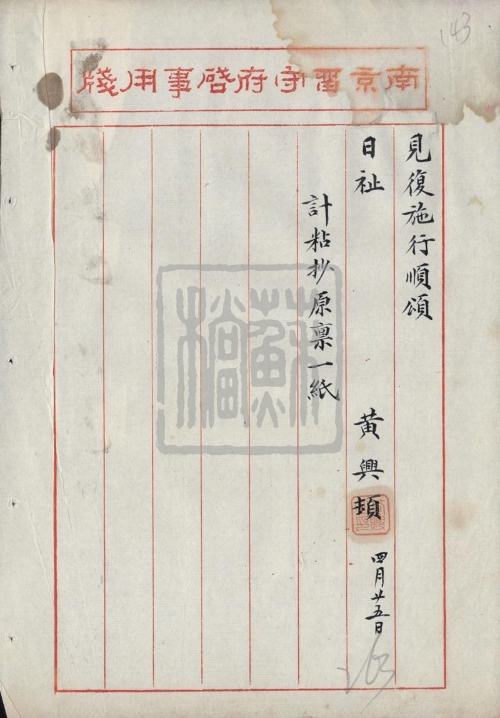 南京留守府啓事用牋
見復施行順頌
日祉
黃興頓
四月廿五日
計粘抄原禀一紙
143
蘇檔